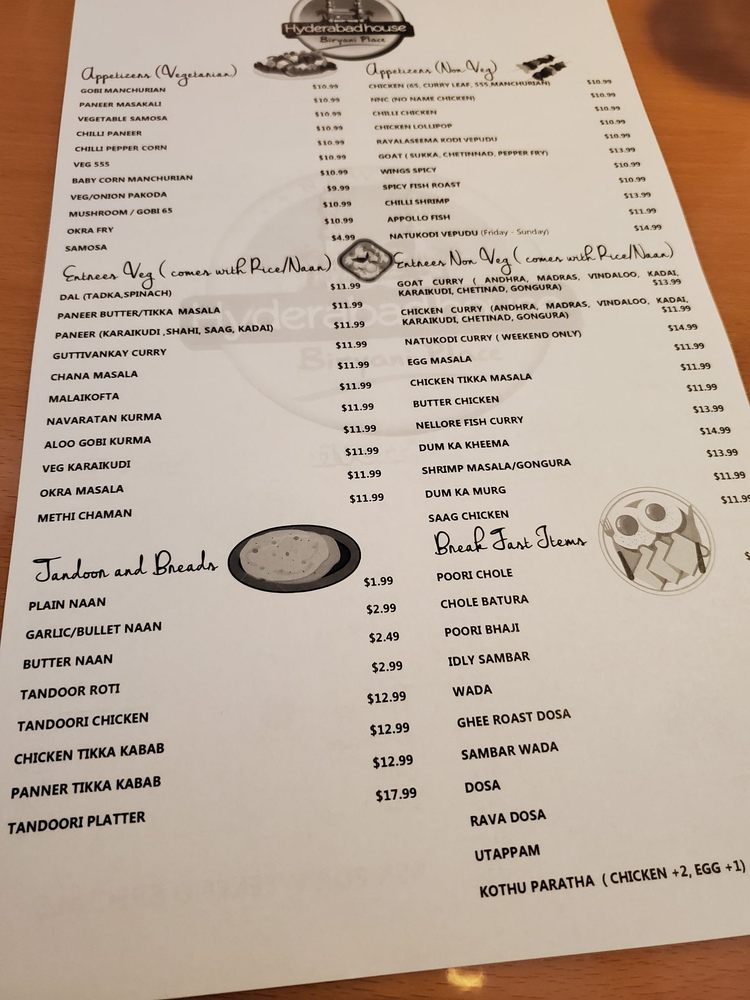 Hyderabad house
Biryani Place
Appetizers (Vegetarian)
GOBI MANCHURIAN $10.99
PANEER MASAKALI $10.99
VEGETABLE SAMOSA $10.99
CHILLI PANEER $10.99
CHILLI PEPPER CORN $10.99
VEG 555 $10.99
BABY CORN MANCHURIAN $10.99
VEG/ONION PAKODA $9.99
MUSHROOM / GOBI 65 $10.99
OKRA FRY $10.99
SAMOSA $4.99
Appetizers (Non Veg)
CHICKEN (65, CURRY LEAF, 555,MANCHURIAN) $10.99
NNC (NO NAME CHICKEN) $10.99
CHILLI CHICKEN $10.99
CHICKEN LOLLIPOP $10.99
RAYALASEEMA KODI VEPUDU $10.99
GOAT ( SUKKA, CHETINNAD, PEPPER FRY) $13.99
WINGS SPICY $10.99
SPICY FISH ROAST $10.99
CHILLI SHRIMP $13.99
APPOLLO FISH $11.99
NATUKODI VEPUDU (Friday - Sunday) $14.99
Entrees Veg ( comes with Rice/Naan)
DAL (TADKA,SPINACH) $11.99
PANEER BUTTER/TIKKA MASALA $11.99
PANEER (KARAIKUDI ,SHAHI, SAAG, KADAI) $11.99
GUTTIVANKAY CURRY $11.99
CHANA MASALA $11.99
MALAIKOFTA $11.99
NAVARATAN KURMA $11.99
ALOO GOBI KURMA $11.99
VEG KARAIKUDI $11.99
OKRA MASALA $11.99
METHI CHAMAN $11.99
Entrees Non Veg ( comes with Rice/Naan)
GOAT CURRY ( ANDHRA, MADRAS, VINDALOO, KADAI,
KARAIKUDI, CHETINAD, GONGURA) $13.99
CHICKEN CURRY (ANDHRA, MADRAS, VINDALOO, KADAI,
KARAIKUDI, CHETINAD, GONGURA) $11.99
NATUKODI CURRY ( WEEKEND ONLY) $14.99
EGG MASALA $11.99
CHICKEN TIKKA MASALA $11.99
BUTTER CHICKEN $11.99
NELLORE FISH CURRY $13.99
DUM KA KHEEMA $14.99
SHRIMP MASALA/GONGURA $13.99
DUM KA MURG $11.99
SAAG CHICKEN $11.99
Tandoor and Breads
PLAIN NAAN $1.99
GARLIC/BULLET NAAN $2.99
BUTTER NAAN $2.49
TANDOOR ROTI $2.99
TANDOORI CHICKEN $12.99
CHICKEN TIKKA KABAB $12.99
PANNER TIKKA KABAB $12.99
TANDOORI PLATTER $17.99
Break Fast Items
POORI CHOLE
CHOLE BATURA
POORI BHAJI
IDLY SAMBAR
WADA
GHEE ROAST DOSA
SAMBAR WADA
DOSA
RAVA DOSA
UTAPPAM
KOTHU PARATHA ( CHICKEN +2, EGG +1)